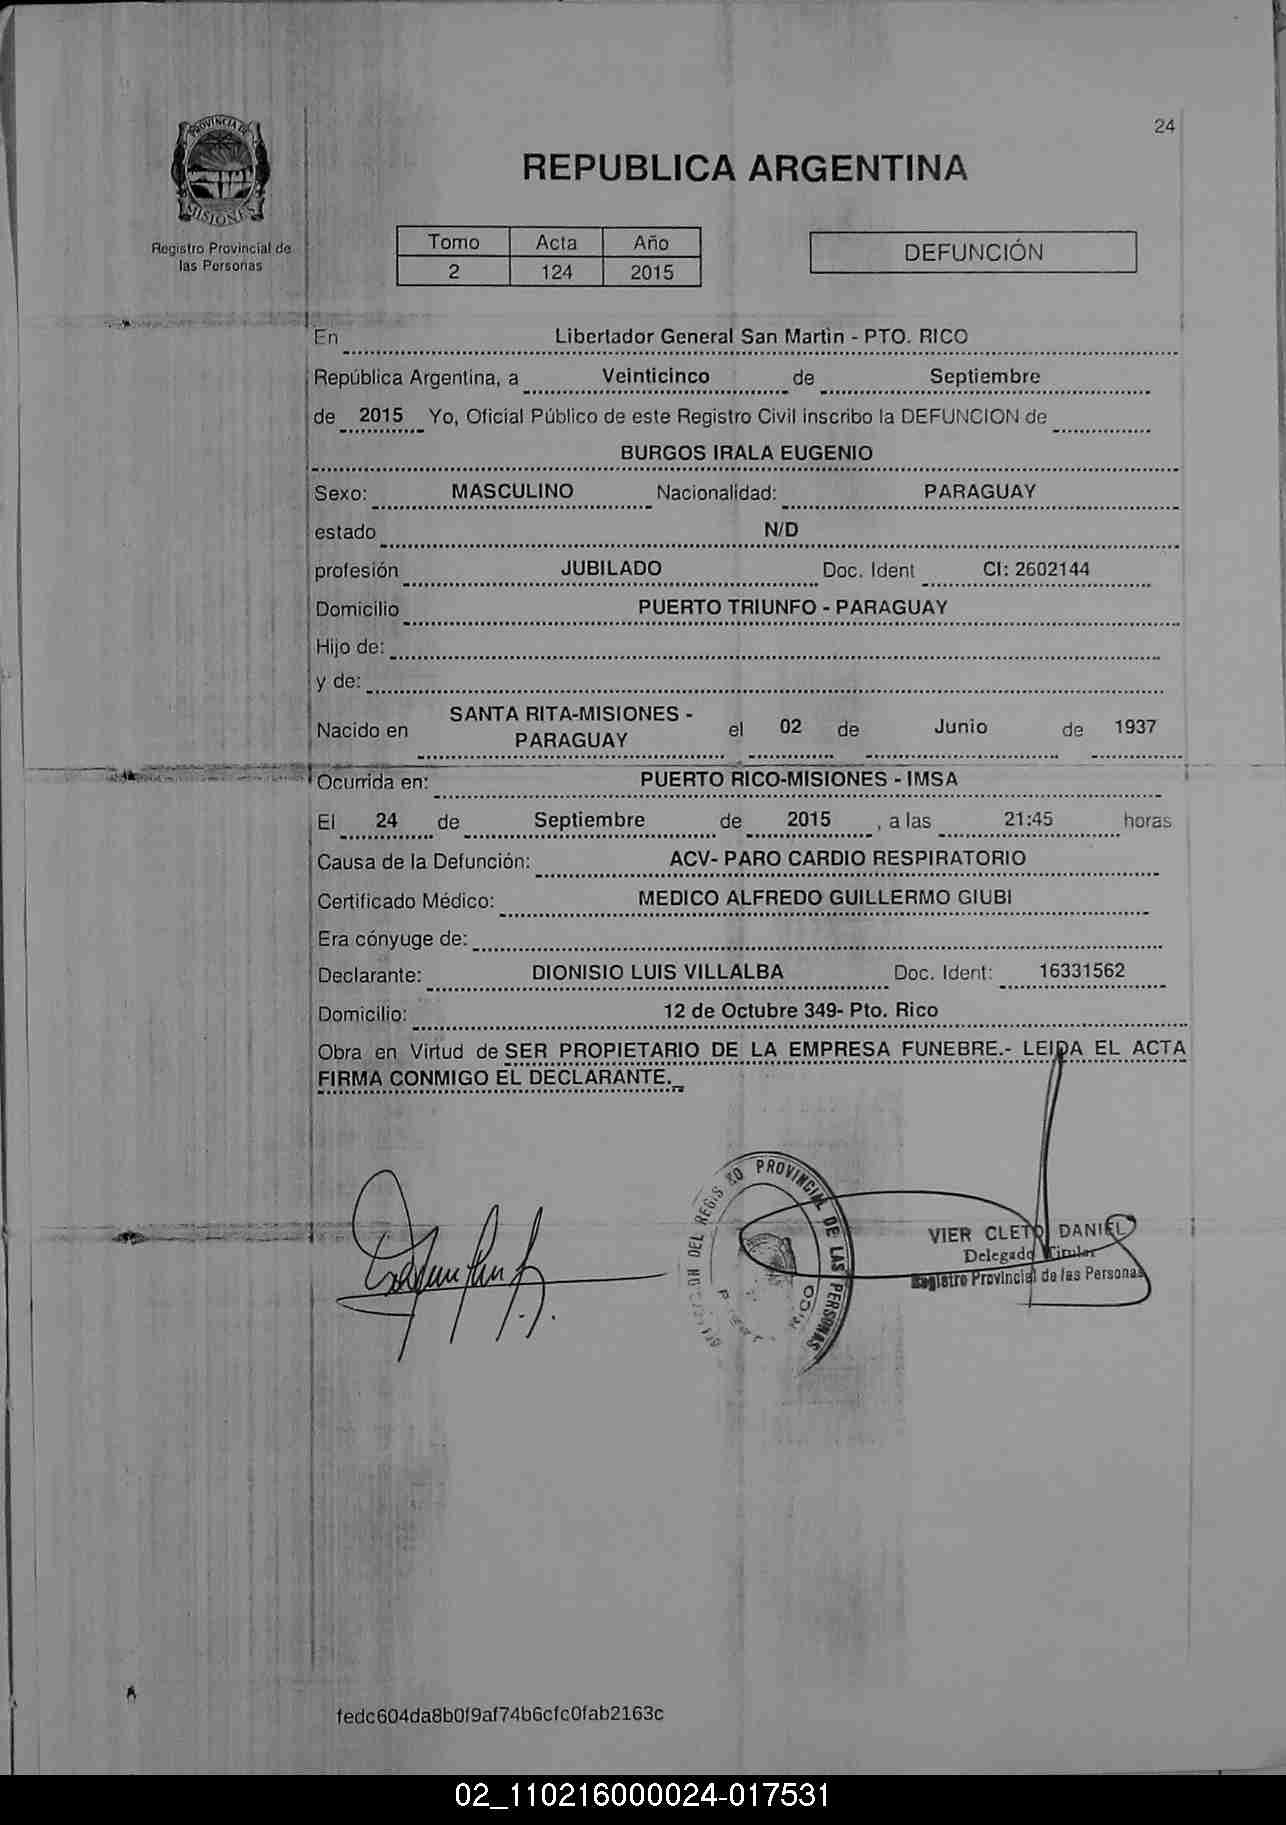 24
PROVINCIA DE
MISIONES
Registro Provincial de
las Personas
REPUBLICA ARGENTINA
Tomo Acta Año
2 124 2015
DEFUNCIÓN
En Libertador General San Martin - PTO. RICO
República Argentina, a Veinticinco de Septiembre
de 2015 Yo, Oficial Público de este Registro Civil inscribo la DEFUNCION de
BURGOS IRALA EUGENIO
Sexo: MASCULINO Nacionalidad: PARAGUAY
estado N/D
profesión JUBILADO Doc. Ident CI: 2602144
Domicilio PUERTO TRIUNFO - PARAGUAY
Hijo de:
y de:
Nacido en SANTA RITA-MISIONES - PARAGUAY el 02 de Junio de 1937
Ocurrida en: PUERTO RICO-MISIONES - IMSA
El 24 de Septiembre de 2015 , a las 21:45 horas
Causa de la Defunción: ACV- PARO CARDIO RESPIRATORIO
Certificado Médico: MEDICO ALFREDO GUILLERMO GIUBI
Era cónyuge de:
Declarante: DIONISIO LUIS VILLALBA Doc. Ident: 16331562
Domicilio: 12 de Octubre 349- Pto. Rico
Obra en Virtud de SER PROPIETARIO DE LA EMPRESA FUNEBRE.- LEIDA EL ACTA
FIRMA CONMIGO EL DECLARANTE.
DEL REGISTRO PROVINCIAL DE LAS PERSONAS
VIER CLETO DANIEL
Delegado Titular
Registro Provincial de las Personas
fedc604da8b0f9af74b6cfc0fab2163c
02_110216000024-017531